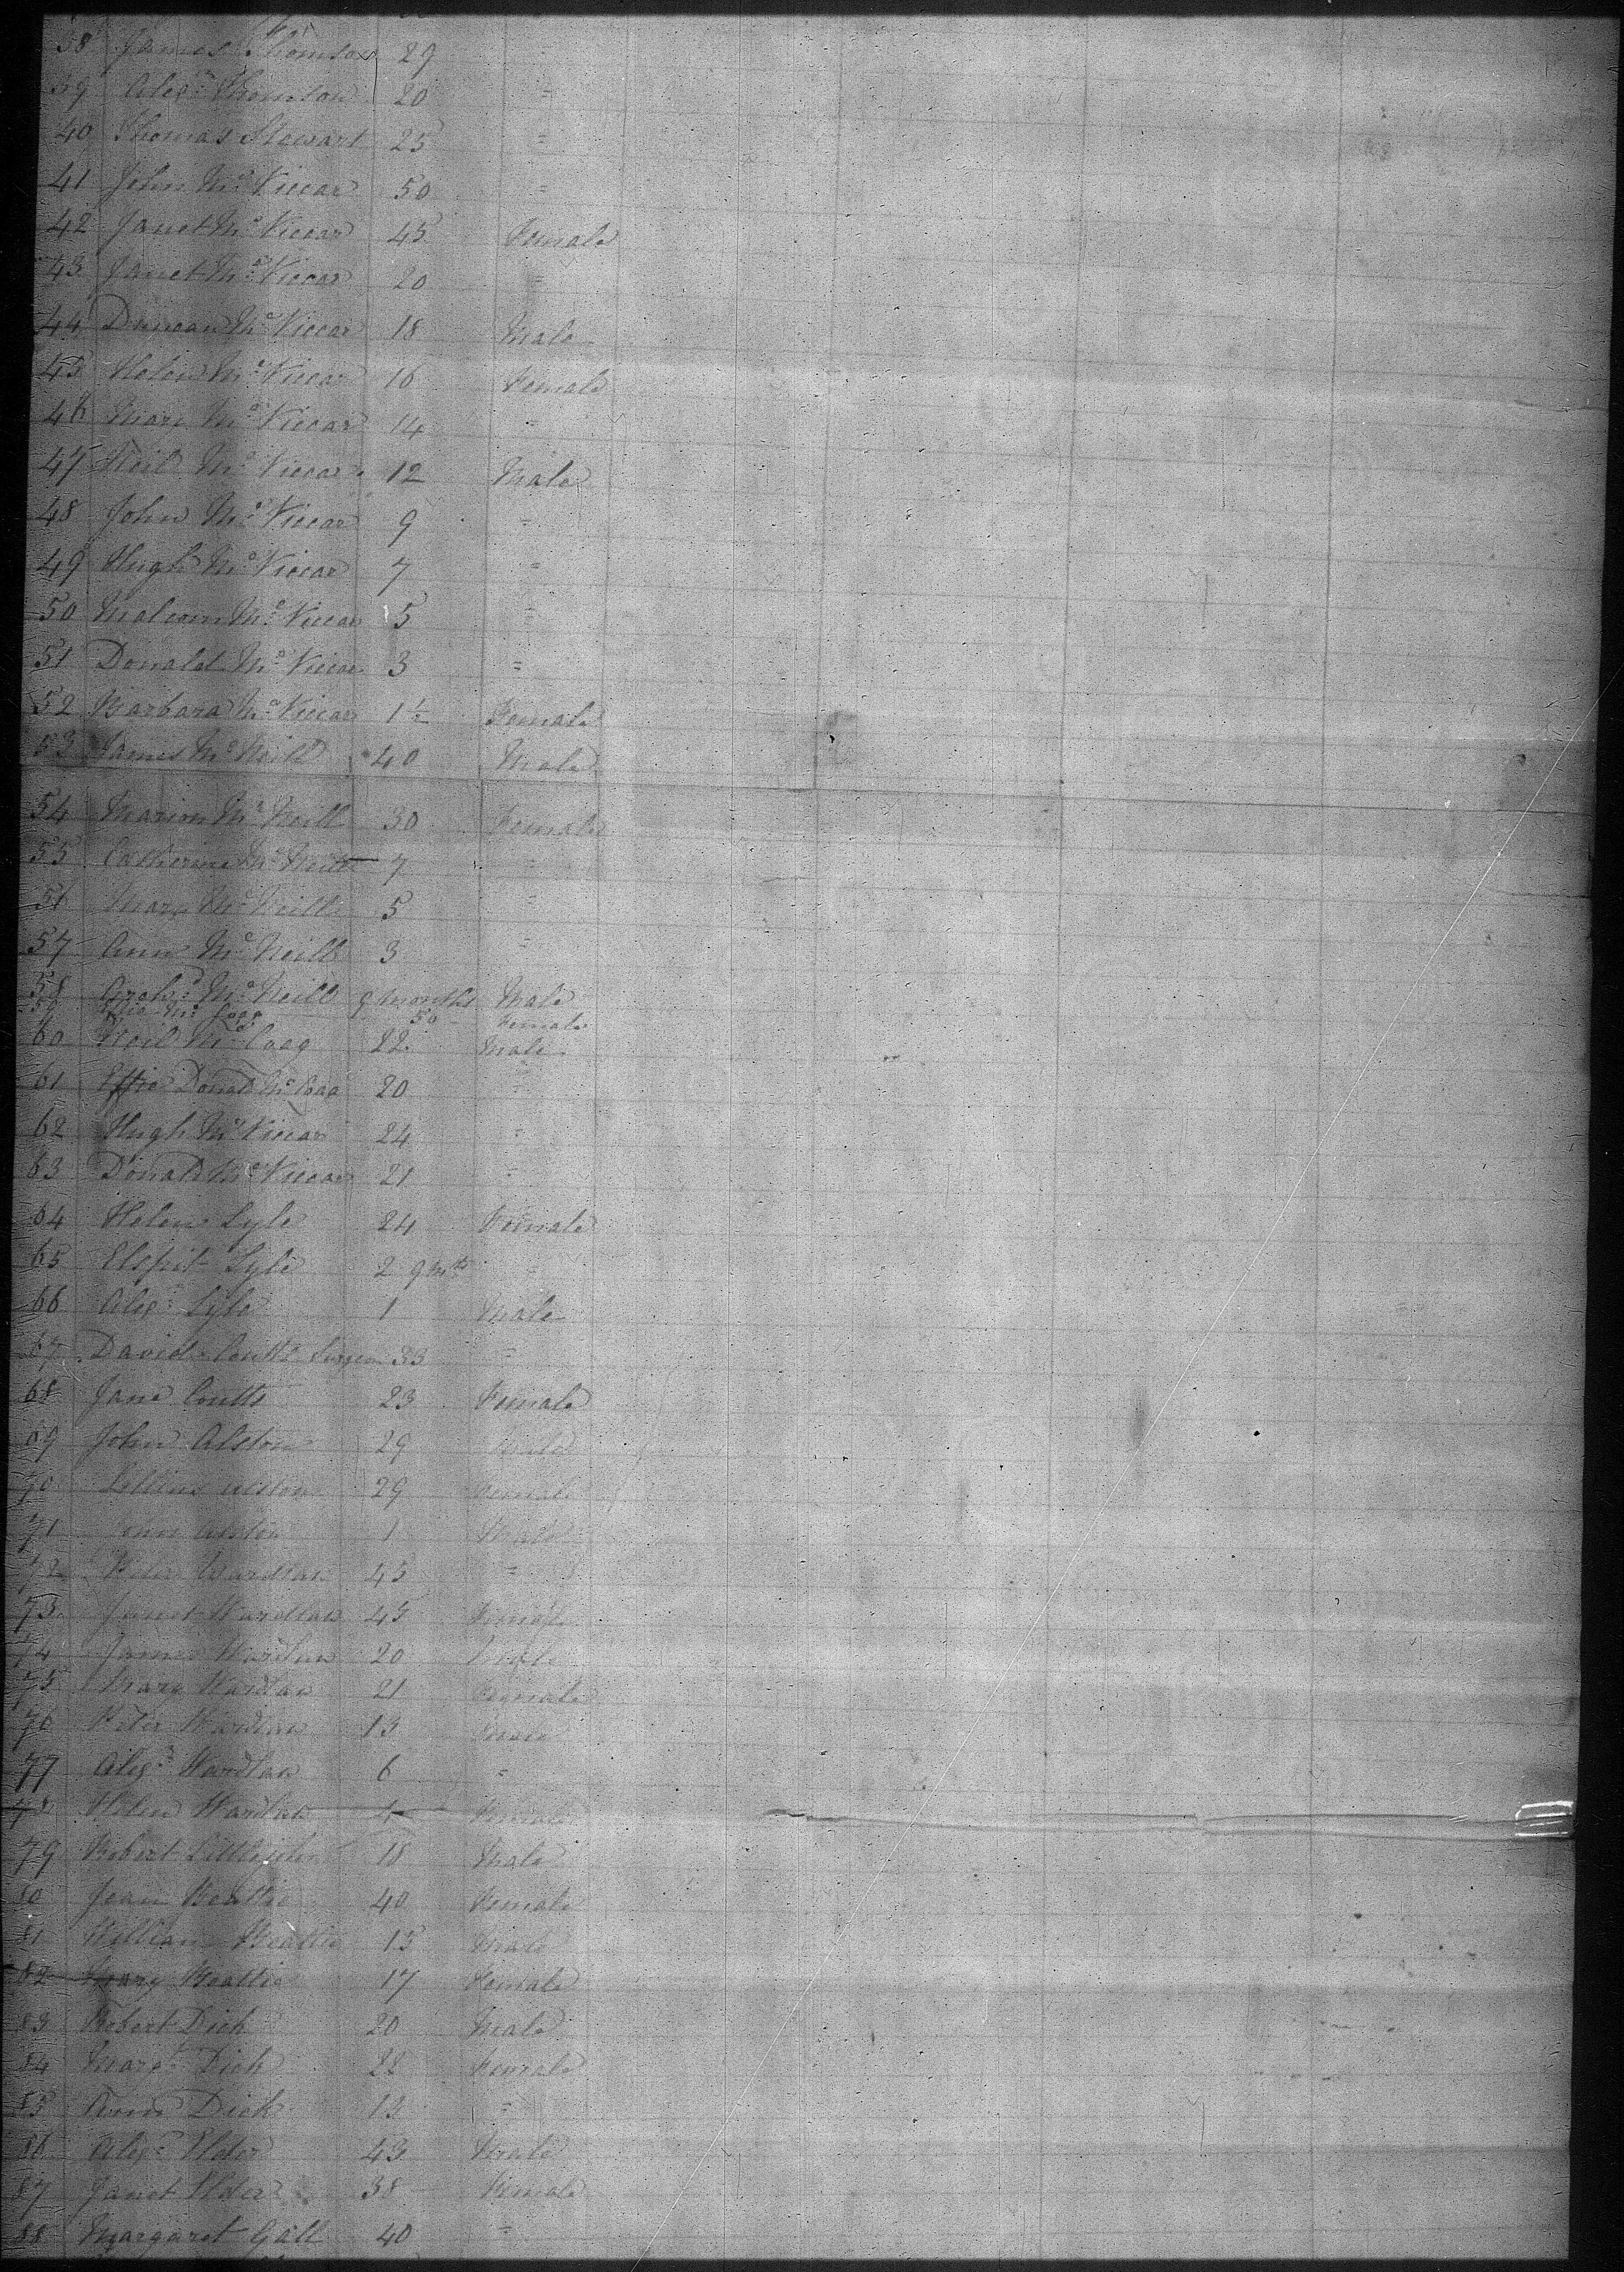 38 James Thomson 29
39 Alexr Thomson 20 =
40 Thomas Stewart 25 =
41 John Mc Viccar 50 =
42 Janet Mc Viccar 45 Female
43 Janet Mc Viccar 20 =
44 Duncan Mc Viccar 18 Male
45 Helen Mc Viccar 16 Female
46 Mary Mc Viccar 14 =
47 Neil Mc Viccar 12 Male
48 John Mc Viccar 9 =
49 Hugh Mc Viccar 7 =
50 Malcom Mc Viccar 5 =
51 Donald Mc Viccar 3 =
52 Barbara Mc Viccar 1½ Female
53 James Mc Neill 40 Male
54 Marion Mc Neill 30 Female
55 Catherine Mc Neill 7 =
56 Mary Mc Neill 5 =
57 Ann Mc Neill 3 =
58 Archd Mc Neill 9 months Male
59 Effie Mc Coag 50 Female
60 Neil Mc Coag 22 Male
61 Effie Donald Mc Coag 20
62 Hugh Mc Viccar 24 =
63 Donald Mc Viccar 21 =
64 Helen Lyle 24 Female
65 Elspit Lyle 2 9 mts =
66 Alexr Lyle 1 Male
67 David Coutts Surgeon 33 =
68 Jane Coutts 23 Female
69 John Alston 29 Male
70 Lillias Alston 29 Female
71 John Alston 1 Male
72 Peter Wardlaw 45 =
73 Janet Wardlaw 45 Female
74 James Wardlaw 20 Male
75 Mary Wardlaw 21 Female
76 Peter Wardlaw 13 Male
77 Alexr Wardlaw 6 =
78 Helen Wardlaw 4 Female
79 Robert Littlejohn 18 Male
80 Jean Beattie 40 Female
81 William Beattie 13 Male
82 Mary Beattie 17 Female
83 Robert Dick 20 Male
84 Margt Dick 22 Female
85 Ann Dick 13 =
86 Alexr Elder 43 Male
87 Janet Elder 38 Female
88 Margaret Gall 40 =